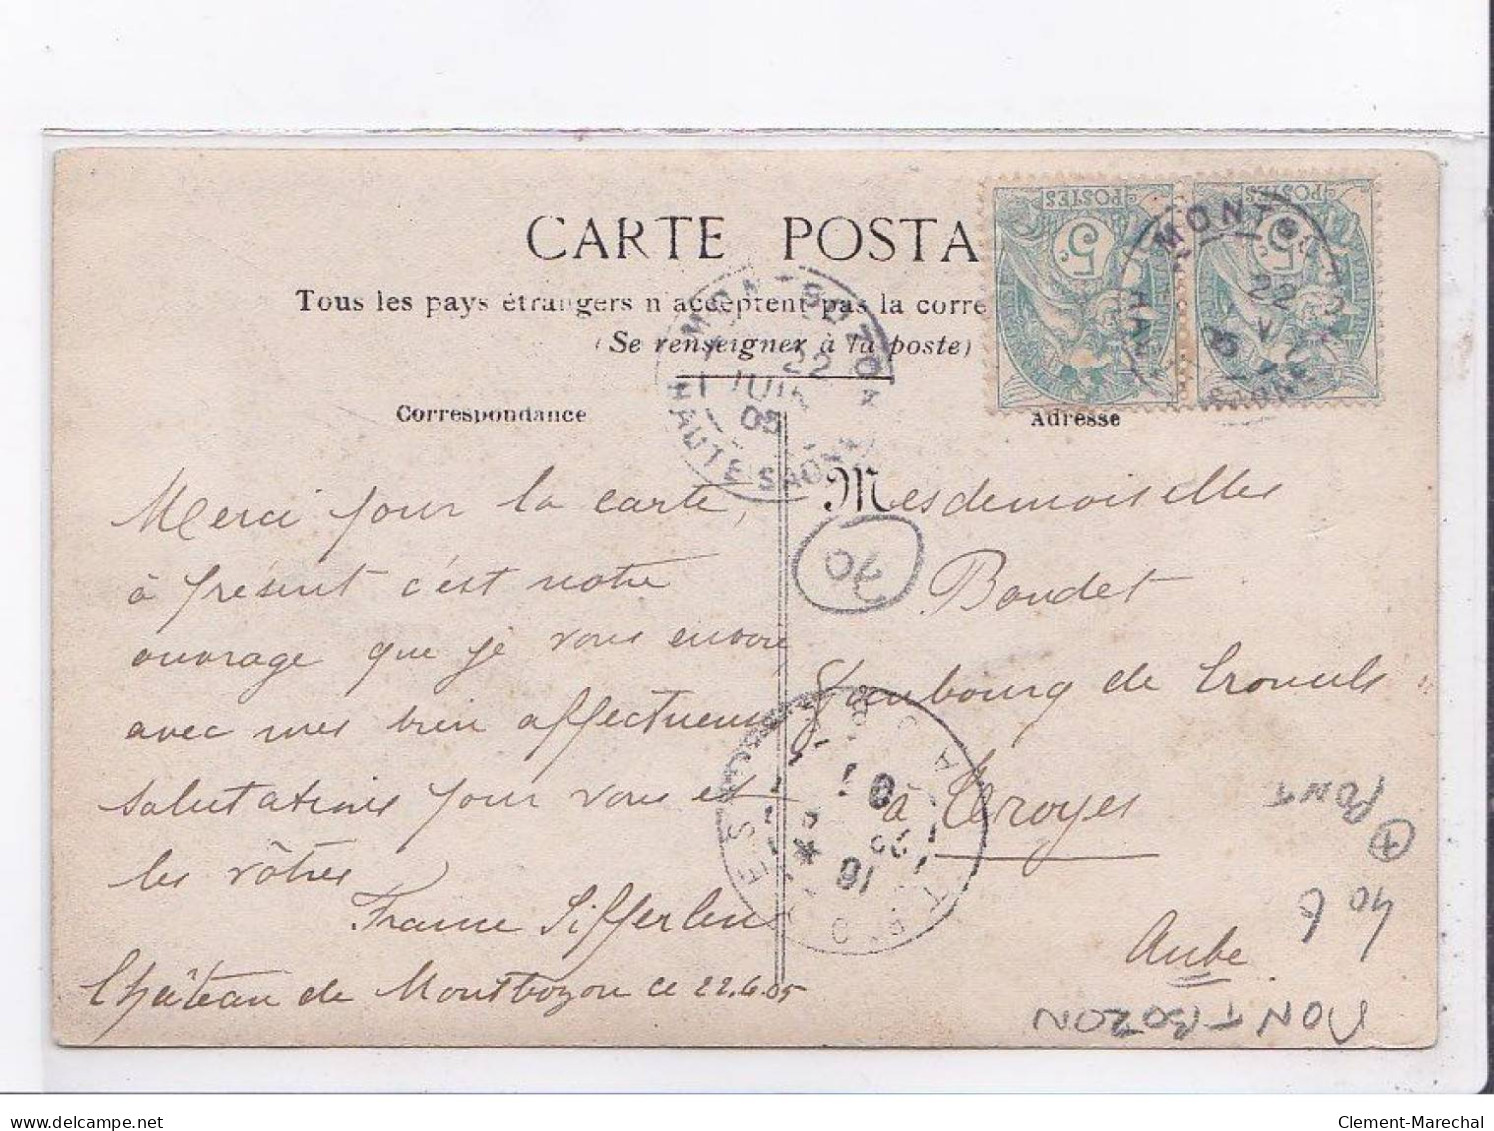 CARTE POSTA
Tous les pays étrangers n'acceptent pas la corre
(Se renseigner à la poste)
Correspondance
Adresse
POSTES
5c
POSTES
5c
MONTBOZON
22
JUIN
05
HAUTE SAÔNE
Merci pour la carte,
à présent c'est notre
ouvrage que je vous envoie
avec mes bien affectueuses
salutations pour vous et
les vôtres
France Sifferlen
Château de Montbozon ce 22.6.05
Mesdemoiselles
Boudet
Faubourg de Croncels
à Troyes
Aube
70
PONT
40 €
MONTBOZON
delcampe.net
Clement-Marechal